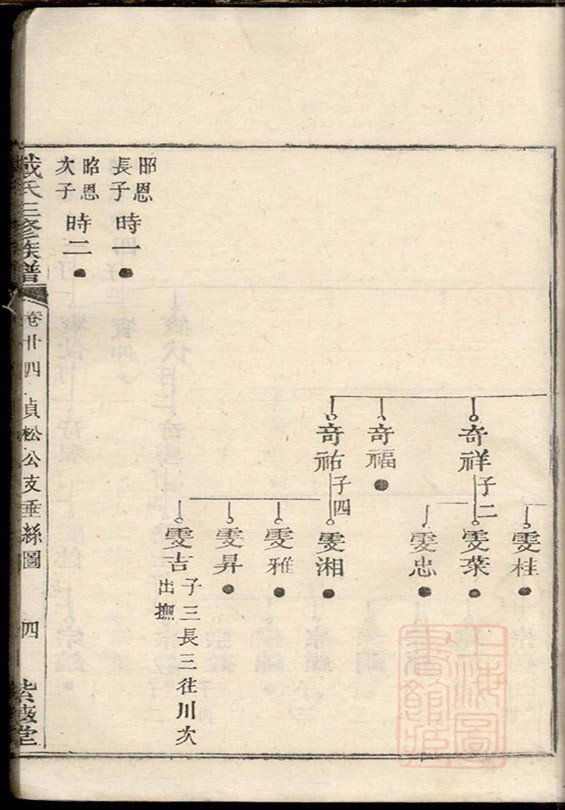 雯桂
奇祥子二
雯菜
雯忠
奇福
奇祐子四
雯湘
雯雅
雯昇
雯吉
子三長三往川次
出撫
昭恩
長子時一
昭恩
次子時二
戴氏三修族譜
卷廿四
貞松公支垂絲圖
四
紫薇堂
上海圖
書館藏